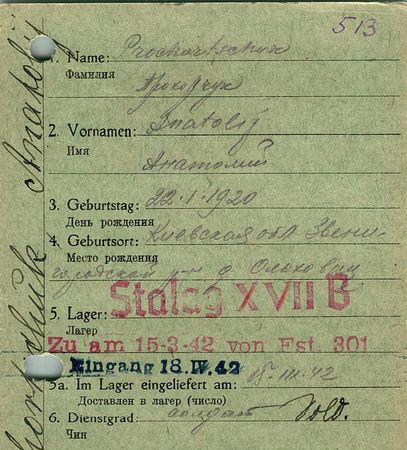 513
1. Name: Prochortschuk
Фамилия
Прохорчук
2. Vornamen: Anatolij
Имя
Анатолий
3. Geburtstag: 22.1.1920
День рождения
4. Geburtsort: Киевская обл Звени-
Место рождения
городской р-н д Ольховец
Stalag XVII B
5. Lager:
Лагер
Zu am 15-3-42 von Fst. 301
Eingang 18.IV.42
5a. Im Lager eingeliefert am: 15.III.42
Доставлен в лагер (число)
6. Dienstgrad: солдат Sold.
Чин
Anatolij